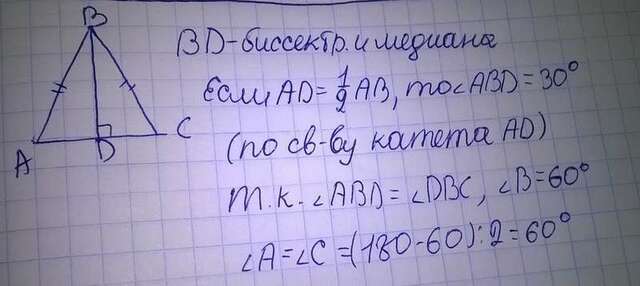 B
A
D
C
BD-биссектр. и медиана
Если AD = 1/2 AB, то ∠ABD = 30°
(по св-ву катета AD)
т.к. ∠ABD = ∠DBC, ∠B = 60°
∠A = ∠C = (180-60):2 = 60°